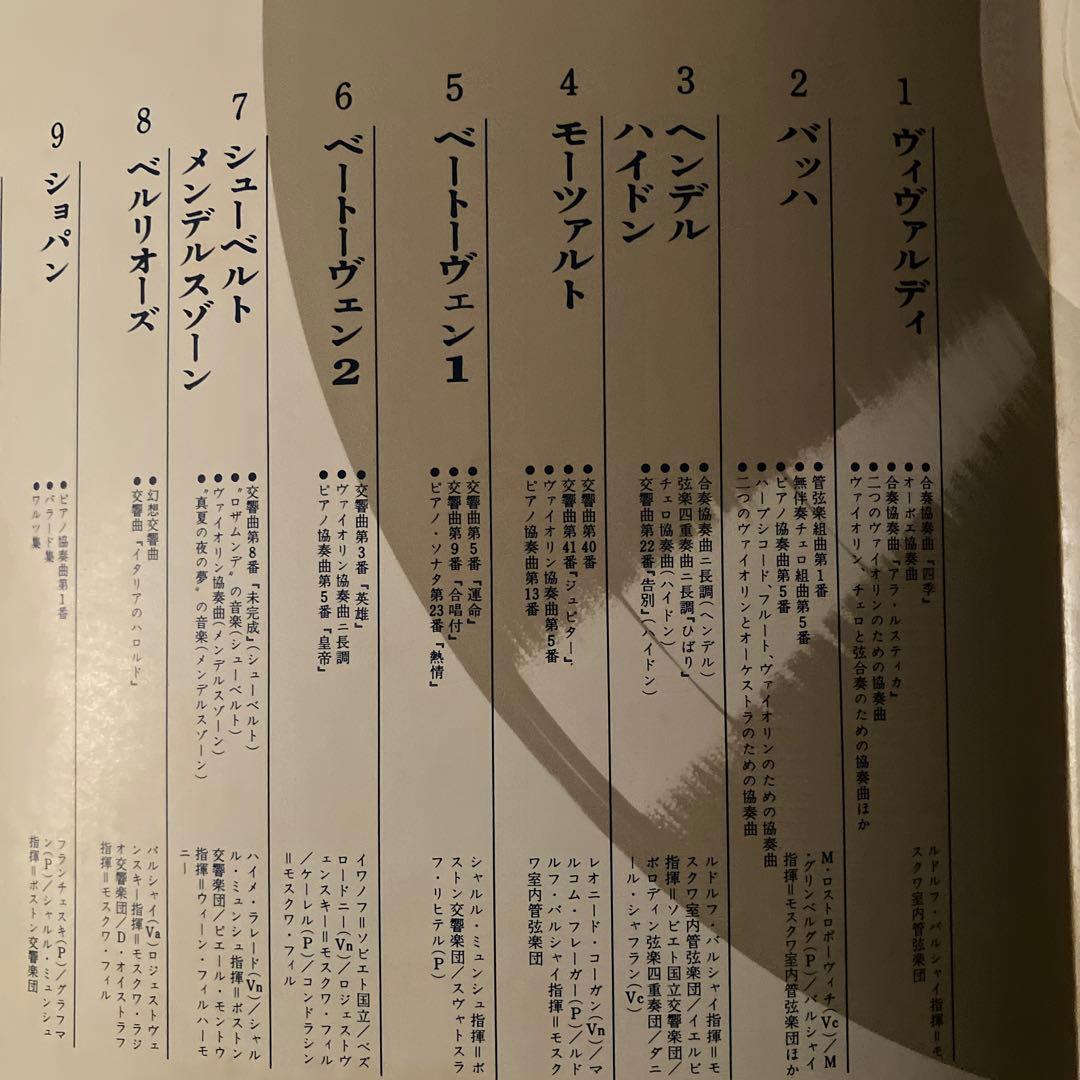 1
ヴィヴァルディ
●合奏協奏曲『四季』
●オーボエ協奏曲
●合奏協奏曲『アラ・ルスティカ』
●二つのヴァイオリンのための協奏曲
●ヴァイオリン、チェロと弦合奏のための協奏曲ほか
ルドルフ・バルシャイ指揮＝モ
スクワ室内管弦楽団
2
バッハ
●管弦楽組曲第1番
●無伴奏チェロ組曲第5番
●ピアノ協奏曲第5番
●ハープシコード、フルート、ヴァイオリンのための協奏曲
●二つのヴァイオリンとオーケストラのための協奏曲
M・ロストロポーヴィチ(Vc)／M
・グリンベルグ(P)／バルシャイ
指揮＝モスクワ室内管弦楽団ほか
3
ヘンデル
ハイドン
●合奏協奏曲ニ長調(ヘンデル)
●弦楽四重奏曲ニ長調『ひばり』
●チェロ協奏曲(ハイドン)
●交響曲第22番『告別』(ハイドン)
ルドルフ・バルシャイ指揮＝モ
スクワ室内管弦楽団／イエルビ
指揮＝ソビエト国立交響楽団／
ボロディン弦楽四重奏団／ダニ
ール・シャフラン(Vc)
4
モーツァルト
●交響曲第40番
●交響曲第41番『ジュピター』
●ヴァイオリン協奏曲第5番
●ピアノ協奏曲第13番
レオニード・コーガン(Vn)／マ
ルコム・フレーガー(P)／ルド
ルフ・バルシャイ指揮＝モスク
ワ室内管弦楽団
5
ベートーヴェン1
●交響曲第5番『運命』
●交響曲第9番『合唱付』
●ピアノ・ソナタ第23番『熱情』
シャルル・ミュンシュ指揮＝ボ
ストン交響楽団／スヴャトスラ
フ・リヒテル(P)
6
ベートーヴェン2
●交響曲第3番『英雄』
●ヴァイオリン協奏曲ニ長調
●ピアノ協奏曲第5番『皇帝』
イワノフ＝ソビエト国立／ベズ
ロードニー(Vn)／ロジェストヴ
ェンスキー＝モスクワ・フィル
／ケーレル(P)／コンドラシン
＝モスクワ・フィル
7
シューベルト
メンデルスゾーン
●交響曲第8番『未完成』(シューベルト)
●〝ロザムンデ〟の音楽(シューベルト)
●ヴァイオリン協奏曲(メンデルスゾーン)
●〝真夏の夜の夢〟の音楽(メンデルスゾーン)
ハイメ・ラレード(Vn)／シャル
ル・ミュンシュ指揮＝ボストン
交響楽団／ピエール・モントウ
指揮＝ウィーン・フィルハーモ
ニー
8
ベルリオーズ
●幻想交響曲
●交響曲『イタリアのハロルド』
バルシャイ(Va)ロジェストヴェ
ンスキー指揮＝モスクワ・ラジ
オ交響楽団／D・オイストラフ
指揮＝モスクワ・フィル
9
ショパン
●ピアノ協奏曲第1番
●バラード集
●ワルツ集
フランチェスキ(P)／グラフマ
ン(P)／シャルル・ミュンシュ
指揮＝ボストン交響楽団